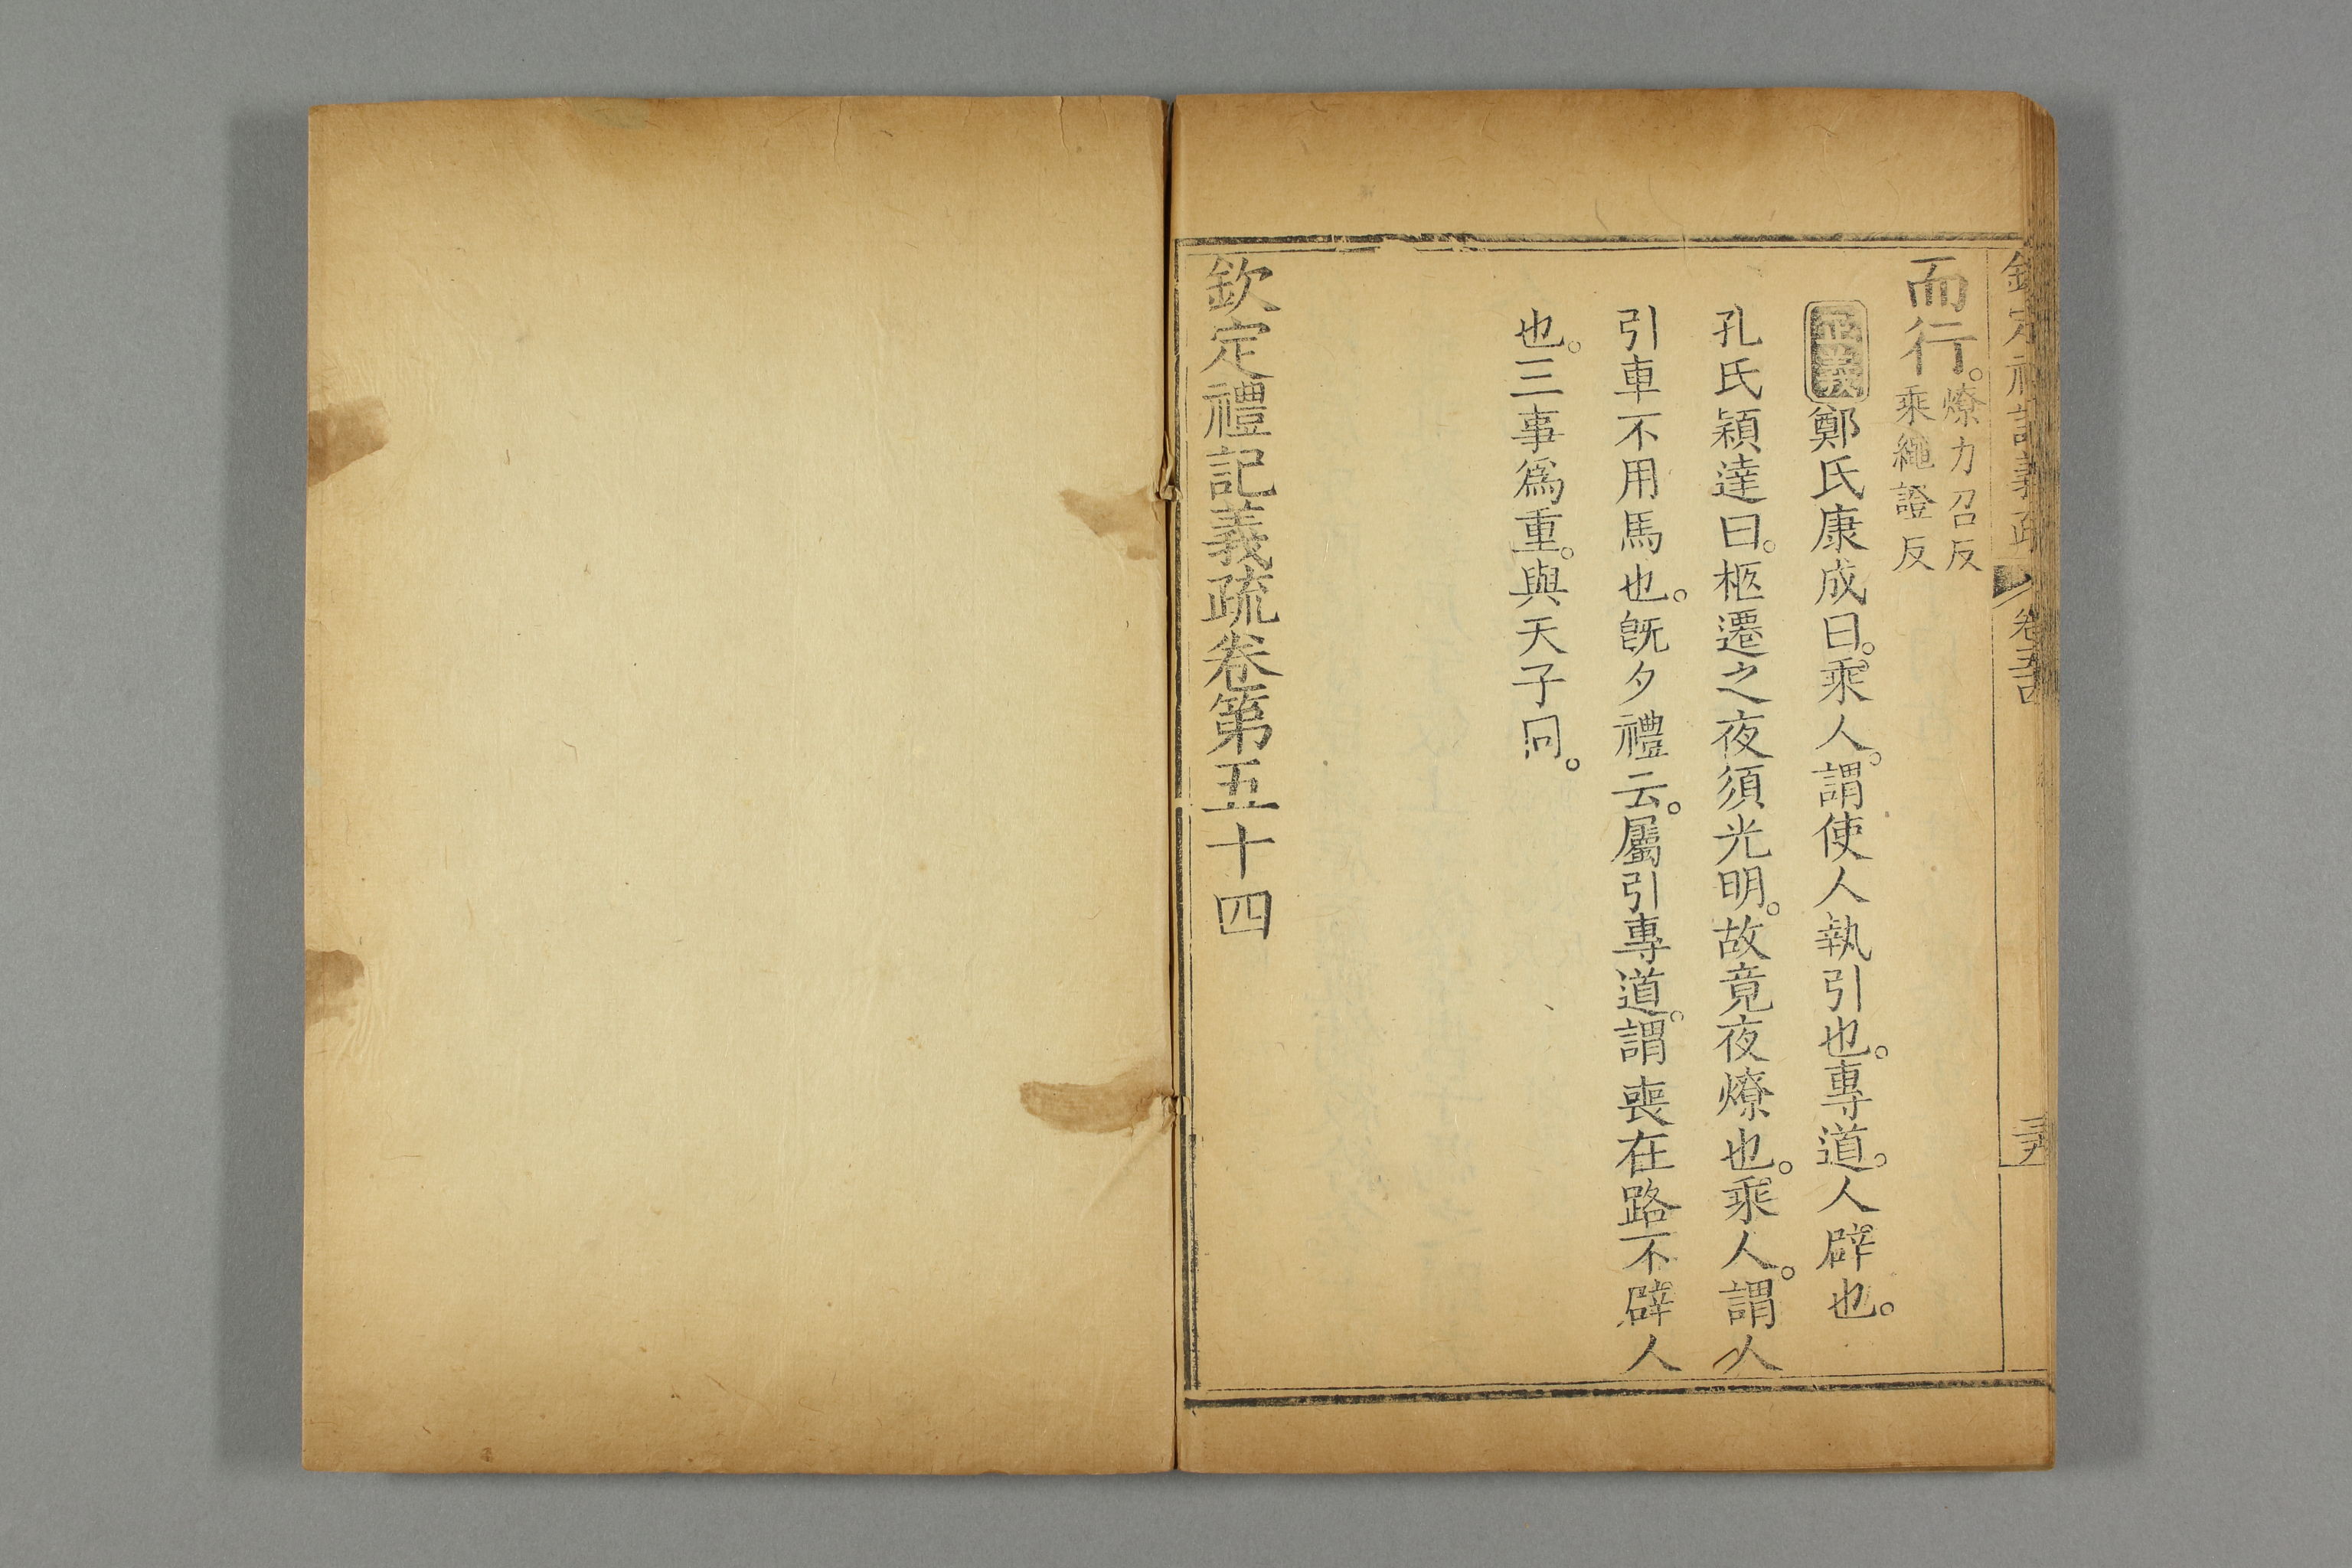 欽定禮記義疏 卷五十四
而行。燎力召反
乘繩證反
正義鄭氏康成曰。乘人。謂使人執引也。專道。人辟也。
孔氏穎達曰。柩遷之夜須光明。故竟夜燎也。乘人。謂人
引車不用馬也。旣夕禮云。屬引專道。謂喪在路不辟人
也。三事爲重。與天子同。
欽定禮記義疏卷第五十四